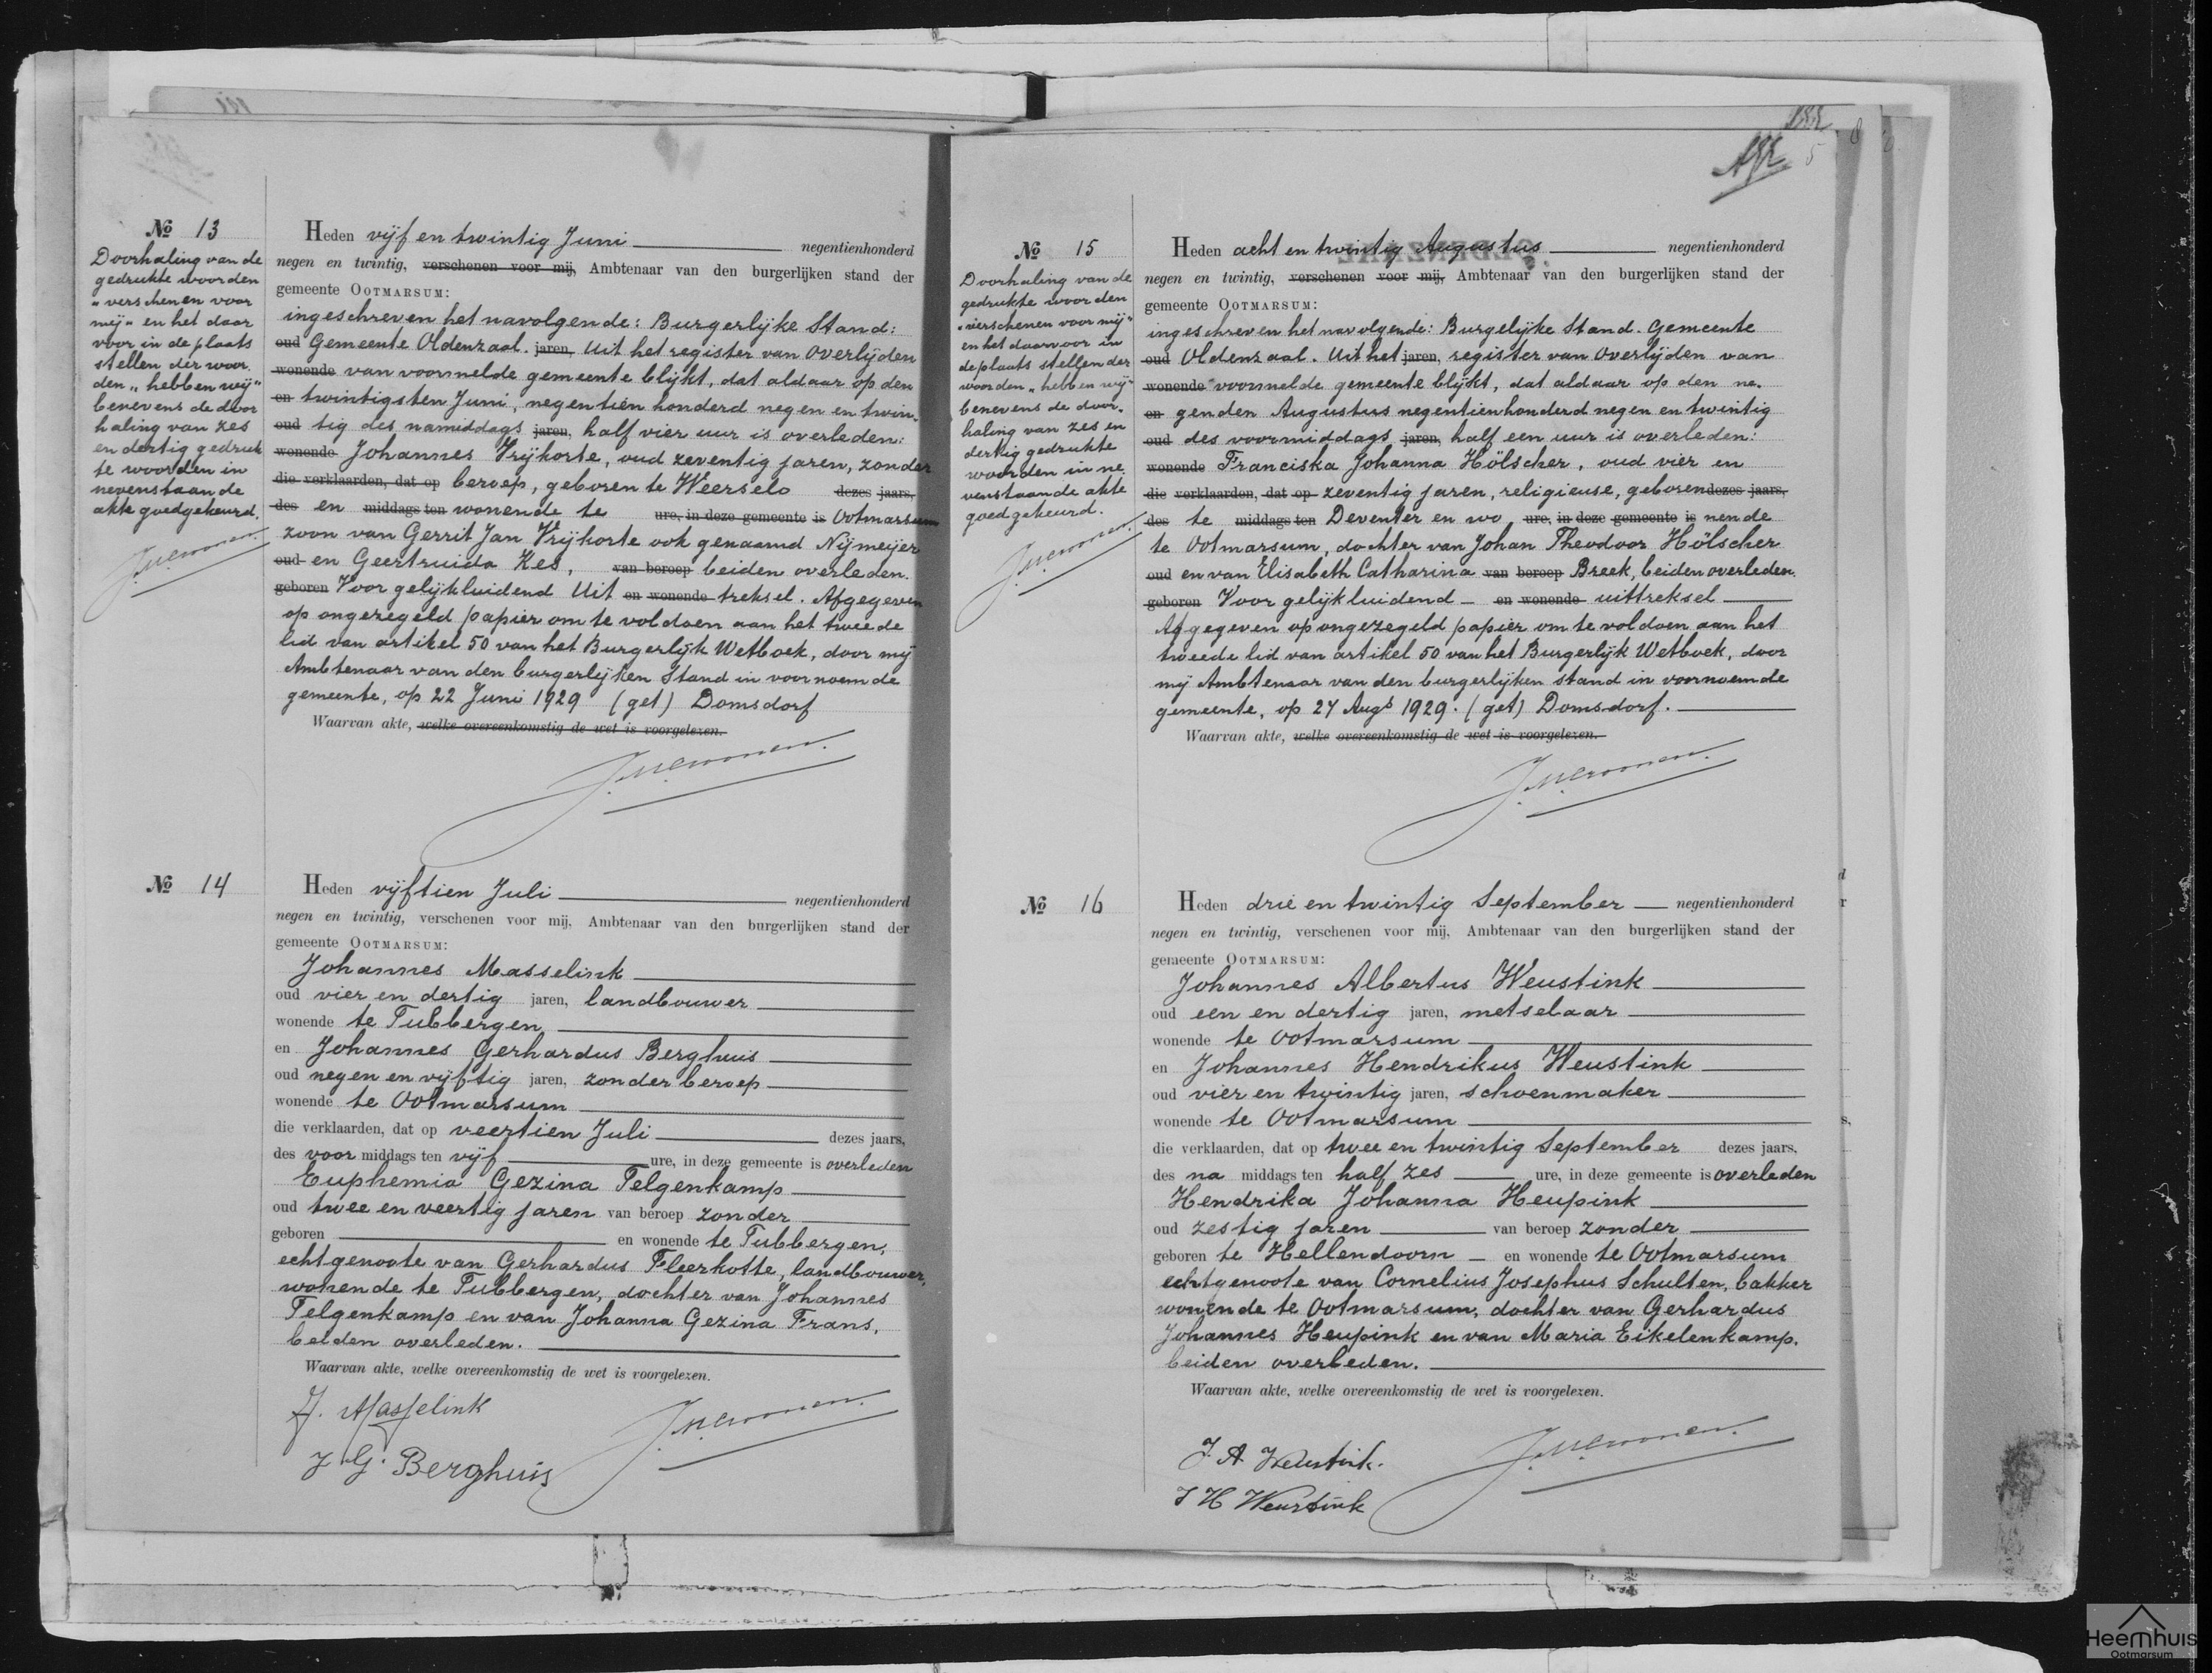 No 13
Doorhaling van de
gedrukte woorden
"verschenen voor
mij" en het daar
voor in de plaats
stellen der woor
den "hebben wij"
benevens de door
haling van zes
en dertig gedruk
te woorden in
nevenstaande
akte goedgekeurd.
Heden vijf en twintig Juni negentienhonderd
negen en twintig, verschenen voor mij, Ambtenaar van den burgerlijken stand der
gemeente OOTMARSUM:
ingeschreven het navolgende: Burgerlijke Stand:
oud Gemeente Oldenzaal. jaren, Uit het register van Overlijden
wonende van voormelde gemeente blijkt, dat aldaar op den
en twintigsten Juni, negentien honderd negen en twin-
oud tig des namiddags jaren, half vier uur is overleden:
wonende Johannes Vrijkorte, oud zeventig jaren, zonder
die verklaarden, dat op beroep, geboren te Weerselo dezes jaars,
des en middags ten wonende te ure, in deze gemeente is Ootmarsum
zoon van Gerrit Jan Vrijkorte ook genaamd Nijmeijer
oud en Geertruida Kes, van beroep beiden overleden.
geboren Voor gelijkluidend Uit en wonende treksel. Afgegeven
op ongezegeld papier om te voldoen aan het tweede
lid van artikel 50 van het Burgerlijk Wetboek, door mij
Ambtenaar van den burgerlijken Stand in voornoemde
gemeente, op 22 Juni 1929 (get) Domsdorf
Waarvan akte, welke overeenkomstig de wet is voorgelezen.
No 14
Heden vijftien Juli negentienhonderd
negen en twintig, verschenen voor mij, Ambtenaar van den burgerlijken stand der
gemeente OOTMARSUM:
Johannes Masselink
oud vier en dertig jaren, landbouwer
wonende te Tubbergen
en Johannes Gerhardus Berghuis
oud negen en vijftig jaren, zonder beroep
wonende te Ootmarsum
die verklaarden, dat op veertien Juli dezes jaars,
des voor middags ten vijf ure, in deze gemeente is overleden
Euphemia Gezina Telgenkamp
oud twee en veertig jaren van beroep zonder
geboren en wonende te Tubbergen,
echtgenoote van Gerhardus Fleerkotte, landbouwer,
wonende te Tubbergen, dochter van Johannes
Telgenkamp en van Johanna Gezina Frans,
beiden overleden.
Waarvan akte, welke overeenkomstig de wet is voorgelezen.
J. Masselink
J G. Berghuis
No 15
Doorhaling van de
gedrukte woorden
"verschenen voor mij"
en het daarvoor in
de plaats stellen der
woorden "hebben wij"
benevens de door-
haling van zes en
dertig gedrukte
woorden in ne
venstaande akte
goedgekeurd.
Heden acht en twintig Augustus negentienhonderd
negen en twintig, verschenen voor mij, Ambtenaar van den burgerlijken stand der
gemeente OOTMARSUM:
ingeschreven het navolgende: Burgelijke Stand. Gemeente
oud Oldenzaal. Uit het jaren, register van Overlijden van
wonende voormelde gemeente blijkt, dat aldaar op den ne-
en genden Augustus negentienhonderd negen en twintig
oud des voormiddags jaren, half een uur is overleden:
wonende Franciska Johanna Hölscher, oud vier en
die verklaarden, dat op zeventig jaren, religieuse, geboren dezes jaars,
des te middags ten Deventer en wo ure, in deze gemeente is nende
te Ootmarsum, dochter van Johan Theodoor Hölscher
oud en van Elisabeth Catharina van beroep Breek, beiden overleden.
geboren Voor gelijkluidend en wonende uittreksel
Afgegeven op ongezegeld papier om te voldoen aan het
tweede lid van artikel 50 van het Burgerlijk Wetboek, door
mij Ambtenaar van den burgerlijken stand in voornoemde
gemeente, op 27 Augs 1929. (get) Domsdorf.
Waarvan akte, welke overeenkomstig de wet is voorgelezen.
No 16
Heden drie en twintig September negentienhonderd
negen en twintig, verschenen voor mij, Ambtenaar van den burgerlijken stand der
gemeente OOTMARSUM:
Johannes Albertus Weustink
oud een en dertig jaren, metselaar
wonende te Ootmarsum
en Johannes Hendrikus Weustink
oud vier en twintig jaren, schoenmaker
wonende te Ootmarsum
die verklaarden, dat op twee en twintig September dezes jaars,
des na middags ten half zes ure, in deze gemeente is overleden
Hendrika Johanna Heupink
oud zestig jaren van beroep zonder
geboren te Hellendoorn en wonende te Ootmarsum
echtgenoote van Cornelius Josephus Schulten, bakker
wonende te Ootmarsum, dochter van Gerhardus
Johannes Heupink en van Maria Eikelenkamp.
beiden overleden.
Waarvan akte, welke overeenkomstig de wet is voorgelezen.
J. A. Weustink.
J H Weustink
Heemhuis
Ootmarsum